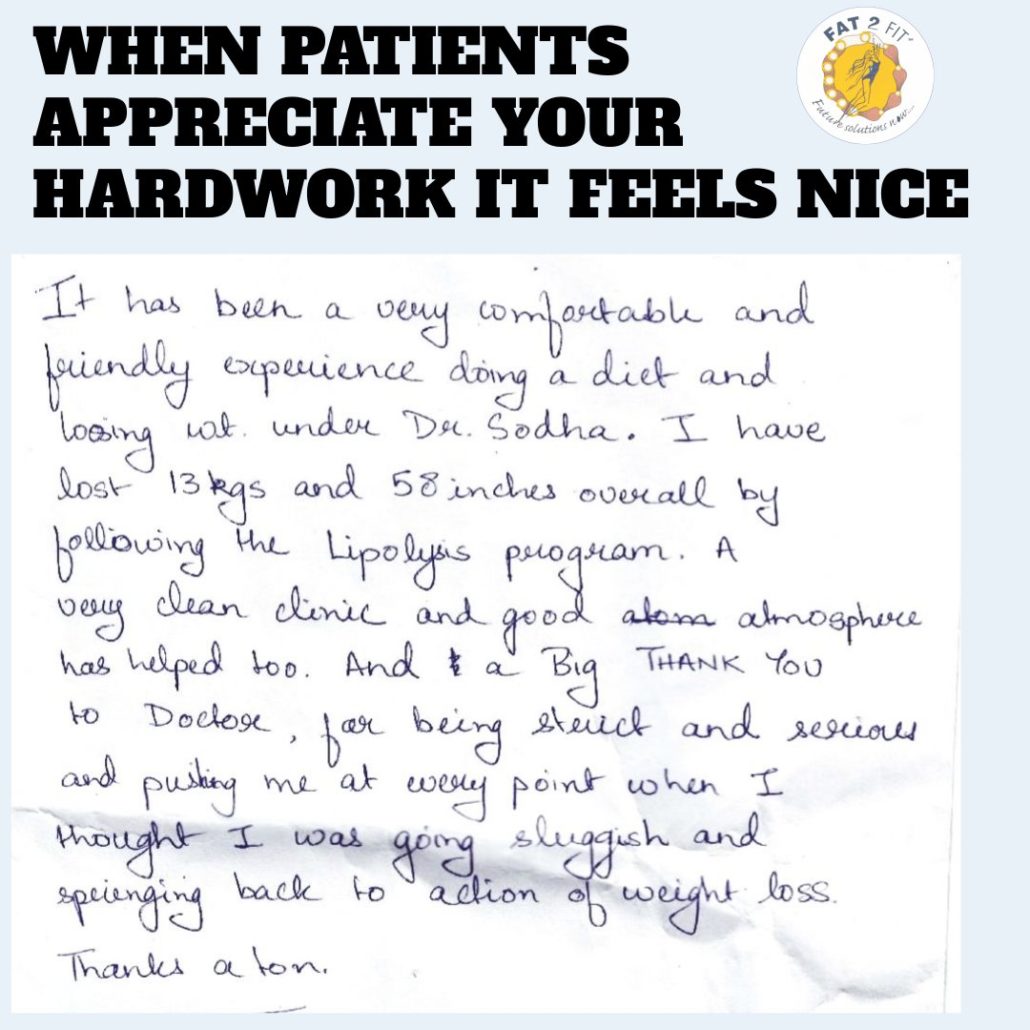 WHEN PATIENTS
APPRECIATE YOUR
HARDWORK IT FEELS NICE
FAT 2 FIT
Future solutions now...
It has been a very comfortable and
friendly experience doing a diet and
loosing wt. under Dr. Sodha. I have
lost 13 kgs and 58 inches overall by
following the Lipolysis program. A
very clean clinic and good atom atmosphere
has helped too. And a Big THANK YOU
to Doctor, for being strict and serious
and pushing me at every point when I
thought I was going sluggish and
speienging back to action of weight loss.
Thanks a ton.